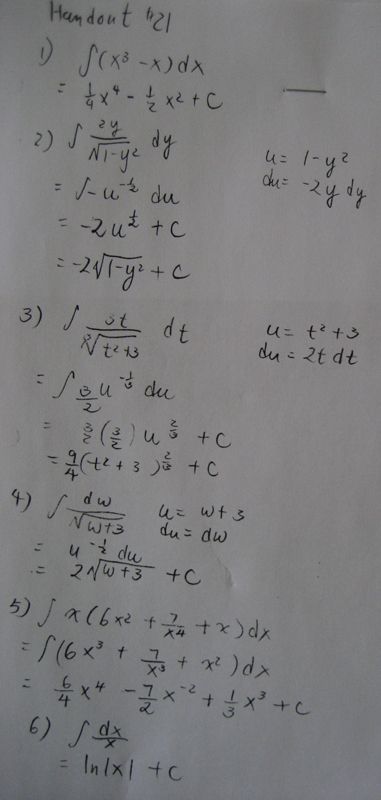 Handout #21
1) ∫(x³ - x)dx
= 1/4 x⁴ - 1/2 x² + C
2) ∫ 2y/√(1-y²) dy
u = 1-y²
du = -2y dy
= ∫-u^(-1/2) du
= -2u^(1/2) + C
= -2√(1-y²) + C
3) ∫ 3t/∛(t²+3) dt
u = t²+3
du = 2t dt
= ∫ 3/2 u^(-1/3) du
= 3/2 (3/2) u^(2/3) + C
= 9/4 (t²+3)^(2/3) + C
4) ∫ dw/√(w+3) u = w+3
du = dw
= u^(-1/2) du
= 2√(w+3) + C
5) ∫ x(6x² + 7/x⁴ + x)dx
= ∫(6x³ + 7/x³ + x²)dx
= 6/4 x⁴ - 7/2 x⁻² + 1/3 x³ + C
6) ∫ dx/x
= ln|x| + C